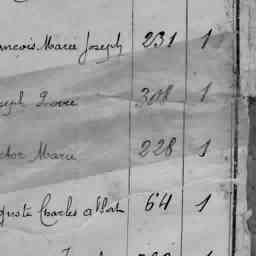 ançois Marie Joseph 231 1
seph 308 1
ctor Marie 228 1
guste Charles albert 64 1